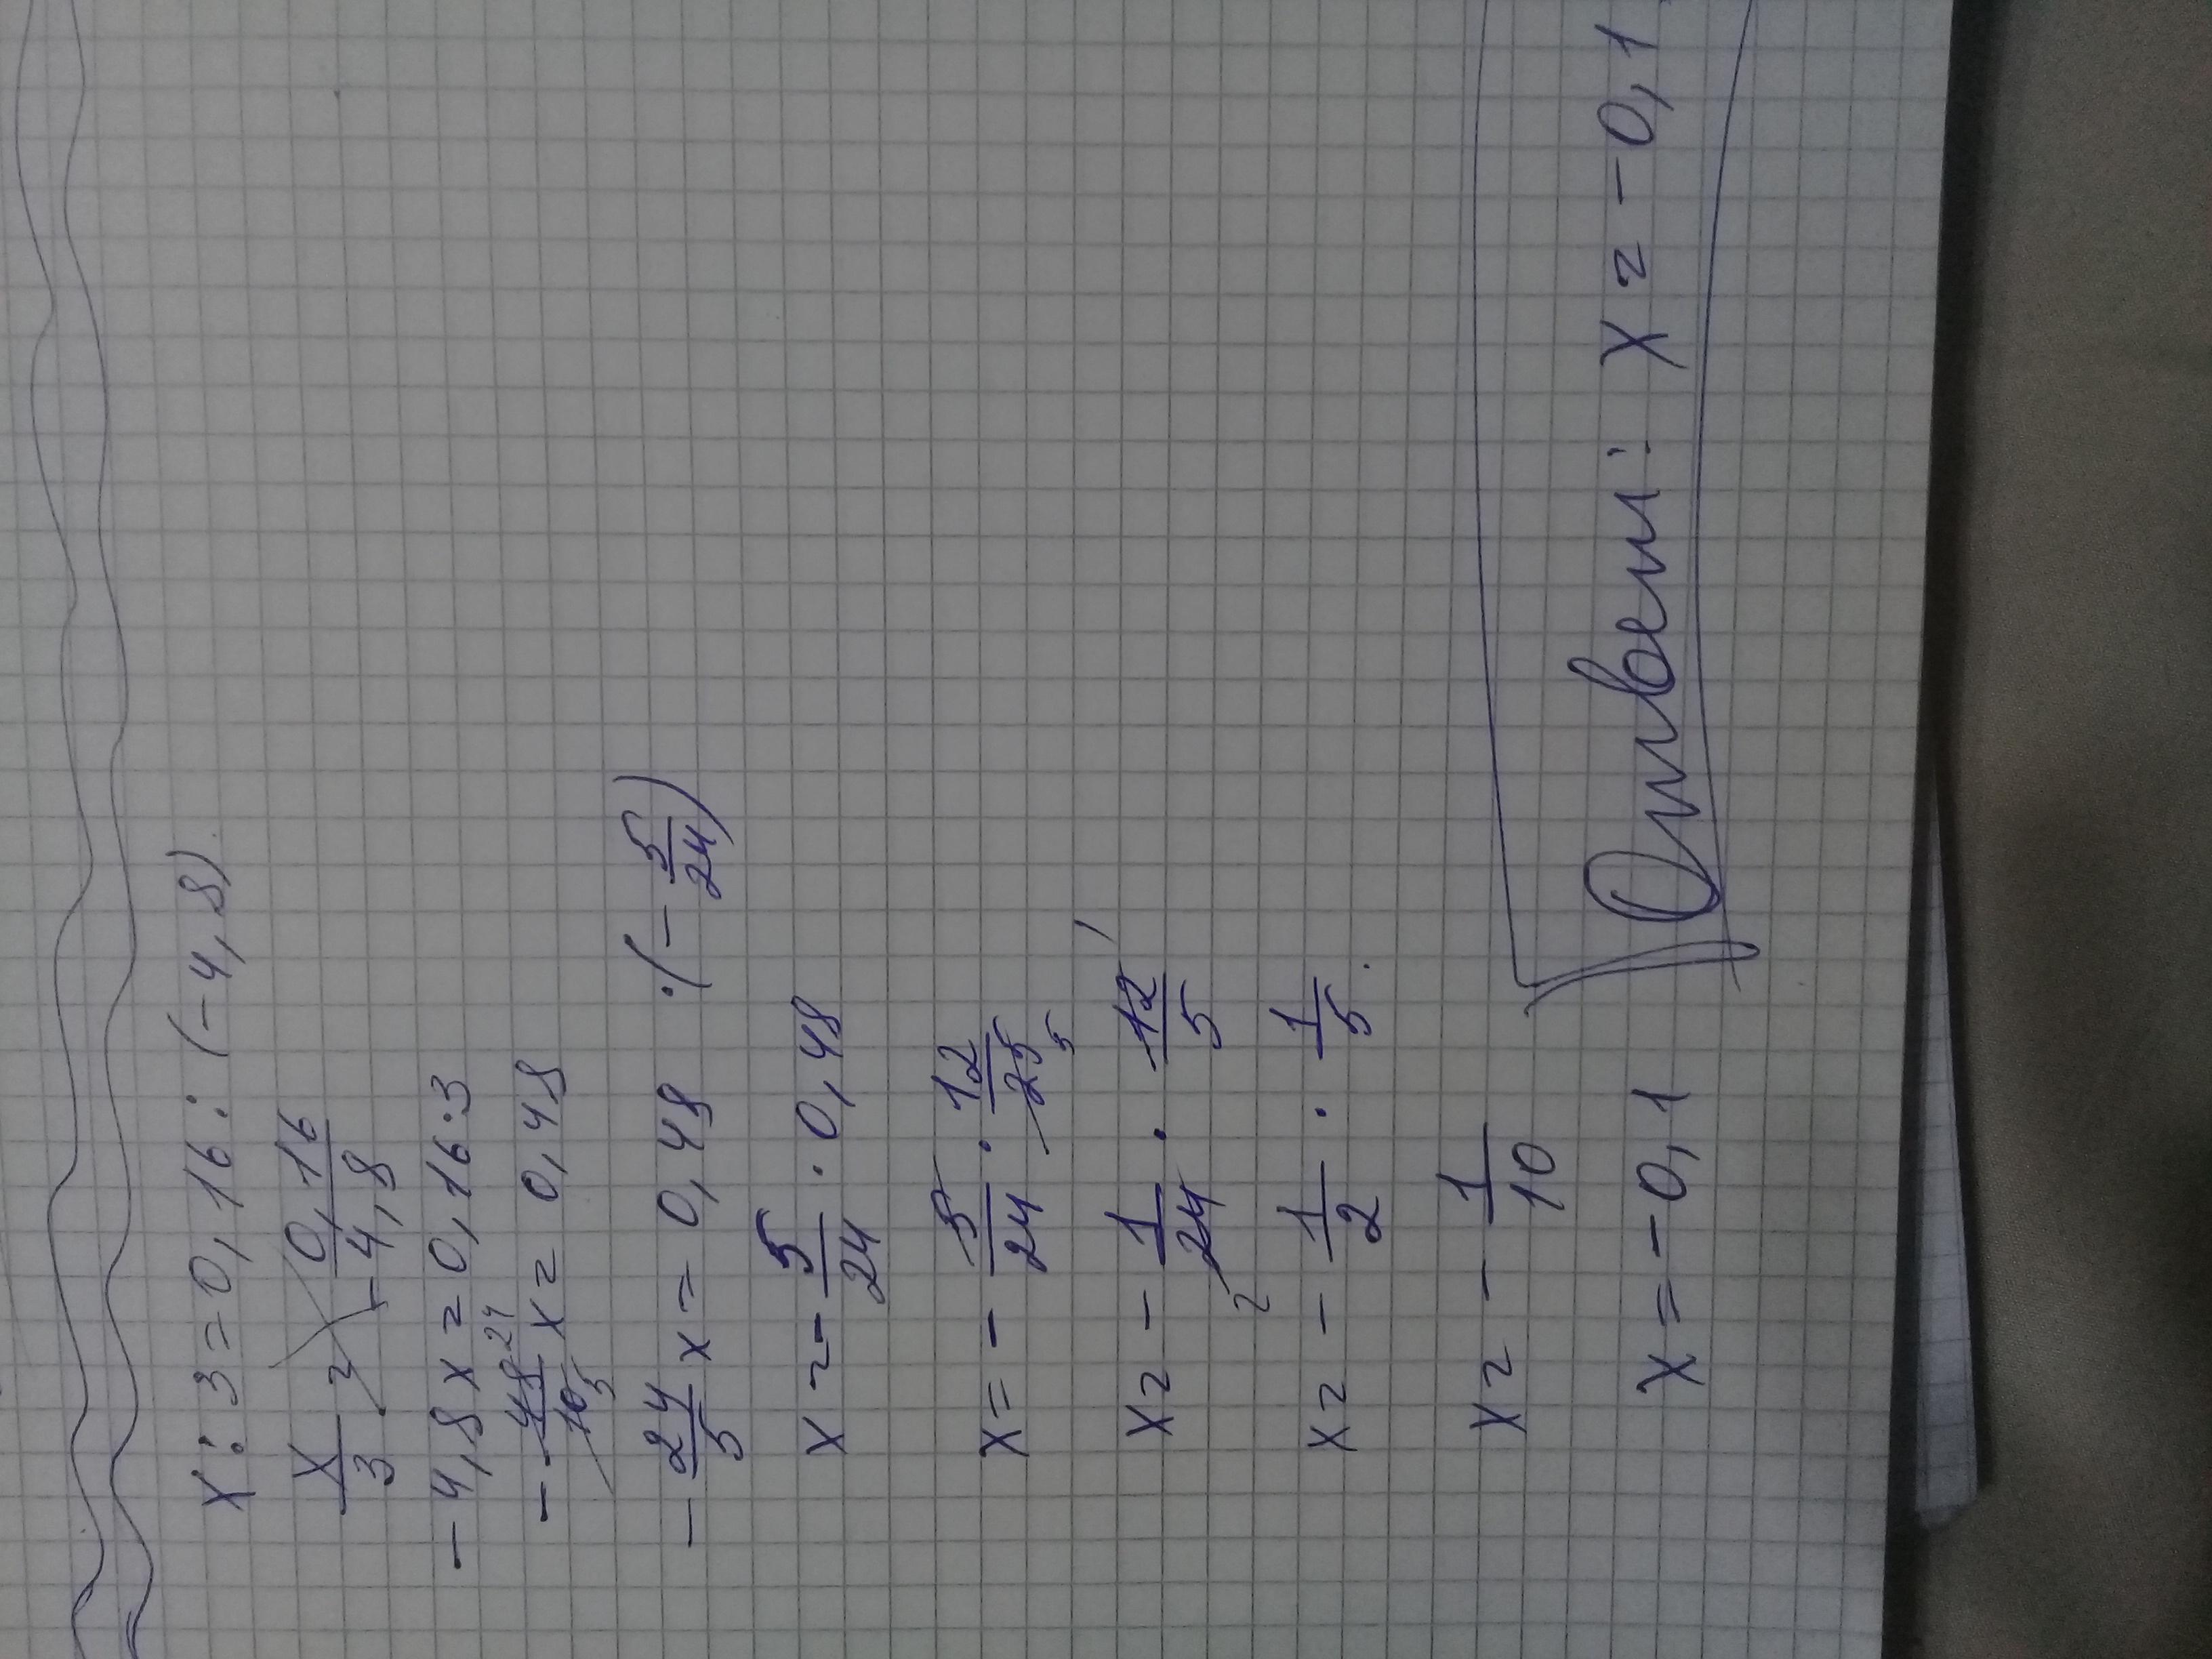 x : 3 = 0,16 : (-4,8)
x/3 = 0,16/-4,8
-4,8x = 0,16·3
-48/10 24 5 x = 0,48
-24/5 x = 0,48 :(-5/24)
x = -5/24 · 0,48
x = -5/24 · 12/25 5
x = -1/24 2 · 12/5 1
x = -1/2 · 1/5
x = -1/10
x = -0,1
Ответ: x = -0,1